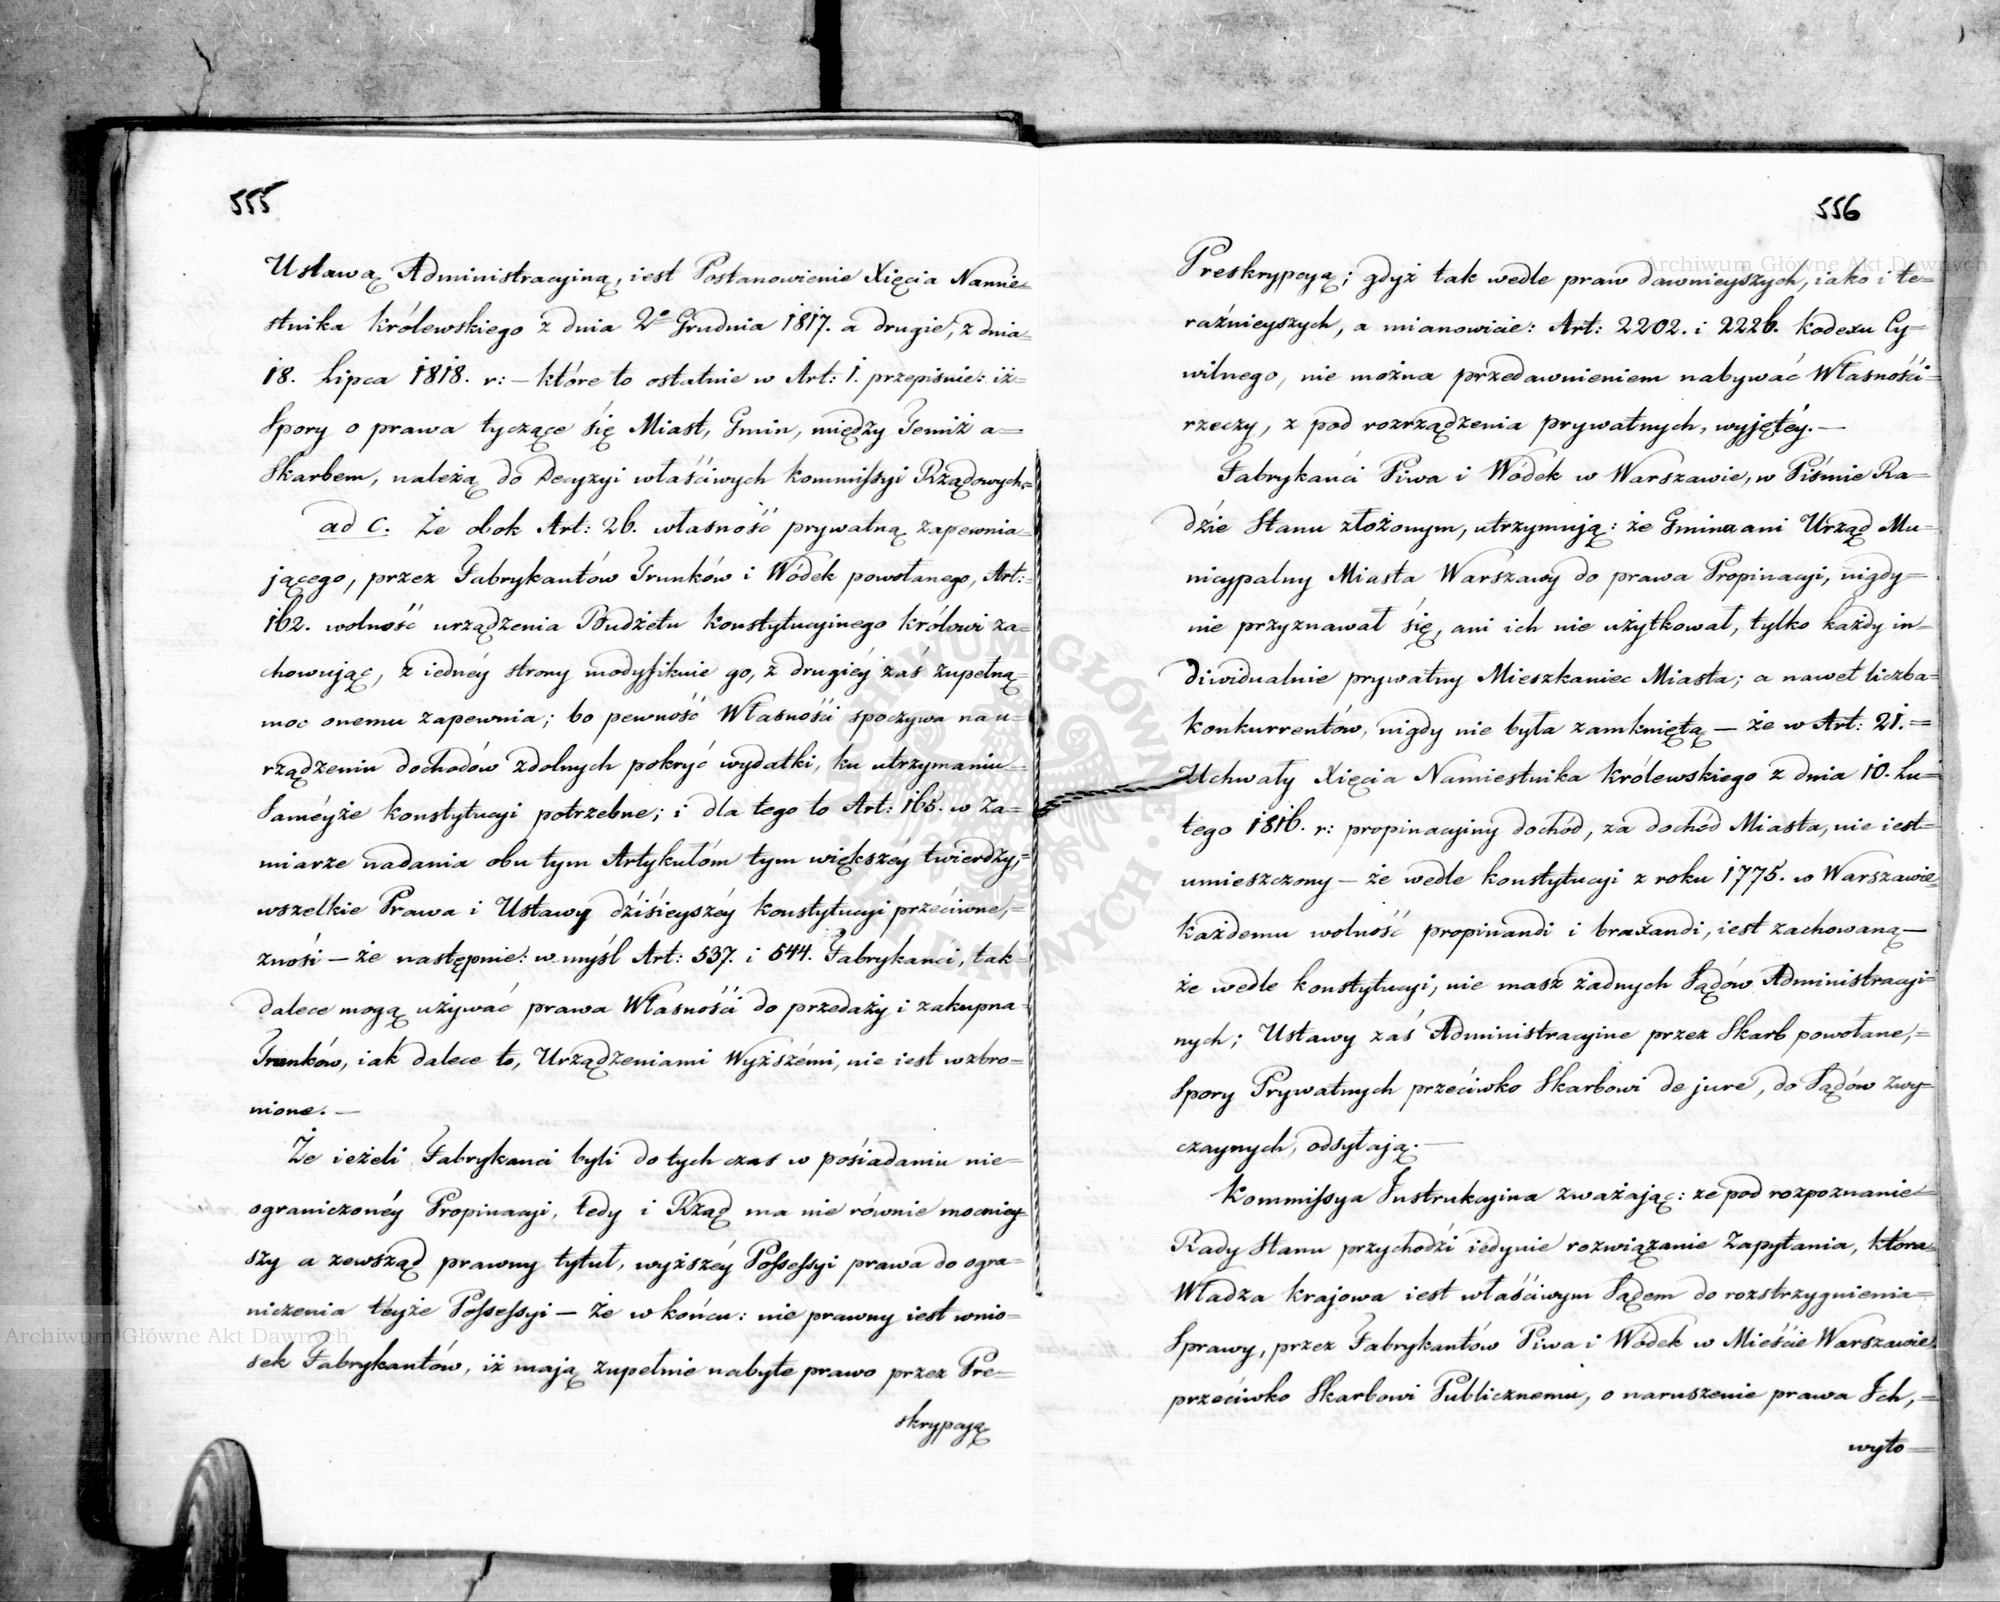 555
Ustawą Administracyiną, iest Postanowienie Xięcia Namie=
stnika Królewskiego z dnia 2º Grudnia 1817. a drugie, z dnia
18. Lipca 1818. r: – które to ostatnie w Art: 1. przepisuie: iż=
Spory o prawa tyczące się Miast, Gmin, między Temiż a=
Skarbem, należą do Decyzyi właściwych Kommissyi Rządowych.=
ad C. Że obok Art: 26. własność prywatną zapewnia=
jącego, przez Fabrykantów Trunków i Wódek powołanego, Art:=
162. wolność urządzenia Budżetu Konstytucyinego Królowi za=
chowując, z iednéy strony modyfikuie go, z drugiéy zaś zupełną=
moc onemu zapewnia; bo pewność Własności spoczywa na u=
rządzeniu dochodów zdolnych pokryć wydatki, ku utrzymaniu=
Saméyże Konstytucyi potrzebne; i dla tego to Art: 165. w Za=
miarze nadania obu tym Artykułóm tym większéy twierdzy,=
wszelkie Prawa i Ustawy dzisieyszéy Konstytucyi przeciwne,=
znosi – że następnie: w myśl Art: 537. i 544. Fabrykanci, tak=
dalece mogą używać prawa Własności do przedaży i zakupna=
Trunków, iak dalece to, Urządzeniami Wyższémi, nie iest wzbro=
nione. –
Że ieżeli Fabrykanci byli do tych czas w posiadaniu nie=
ograniczonéy Propinacyi, tedy i Rząd ma nie równie mocniey=
szy a zewsząd prawny tytuł, wyższéy Possessyi prawa do ogra=
niczenia téyże Possessyi – Że w końcu: nie prawny iest wnio=
sek Fabrykantów, iż mają zupełnie nabyte prawo przez Pre=
skrypcyą
556
Preskrypcyą; gdyż tak wedle praw dawnieyszych, iako i te=
raźnieyszych, a mianowicie: Art: 2202. i 2226. Kodexu Cy=
wilnego, nie można przedawnieniem nabywać Własności=
rzeczy, z pod rozrządzenia prywatnych, wyjętéy. –
Fabrykanci Piwa i Wódek w Warszawie, w Piśmie Ra=
dzie Stanu złożonym, utrzymują: że Gmina ani Urząd Mu=
nicypalny Miasta Warszawy do prawa Propinacyi, nigdy=
nie przyznawał się, ani ich nie użytkował, tylko każdy in=
diwidualnie prywatny Mieszkaniec Miasta; a nawet liczba=
konkurrentów, nigdy nie była zamkniętą – że w Art: 21.=
Uchwały Xięcia Namiestnika Królewskiego z dnia 10. Lu=
tego 1816. r: propinacyiny dochód, za dochód Miasta, nie iest=
umieszczony – że wedle Konstytucyi z roku 1775. w Warszawie=
każdemu wolność propinandi i braxandi, iest zachowaną –
że wedle Konstytucyi, nie masz żadnych Sądów Administracyi=
nych; Ustawy zaś Administracyine przez Skarb powołane,=
Spory Prywatnych przeciwko Skarbowi de jure, do Sądów Zwy=
czaynych, odsyłają. –
Kommissya Instrukcyina zważając: ze pod rozpoznanie=
Rady Stanu przychodzi iedynie rozwiązanie Zapytania, która=
Władza krajowa iest właściwym Sądem do rozstrzygnienia=
Sprawy, przez Fabrykantów Piwa i Wódek w Mieście Warszawie
przeciwko Skarbowi Publicznemu, o naruszenie prawa Ich,=
wyto=
Archiwum Główne Akt Dawnych
Archiwum Główne Akt Dawnych
ARCHIWUM GŁÓWNE AKT DAWNYCH